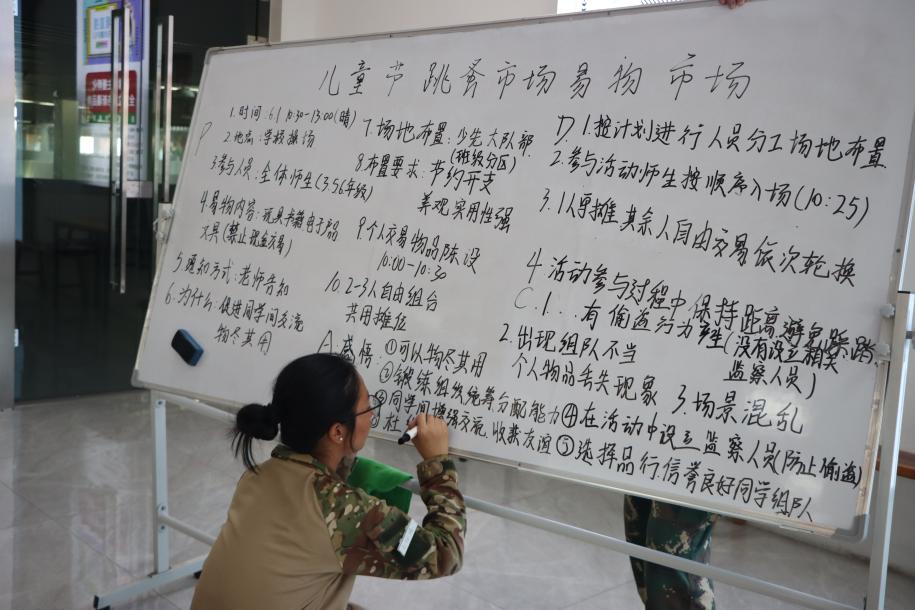 儿童节跳蚤市场易物市场
P
1.时间:6.1 10:30-13:00(晴)
2.地点:学校操场
3.参与人员:全体师生(3.5.6年级)
4.易物内容:玩具书籍电子产品
文具(禁止现金交易)
5.通知方式:老师告知
6.为什么:促进同学间交流
物尽其用
7.场地布置:少先大队部.
(班级分区)
8.布置要求:节约开支
美观.实用性强
9.个人交易物品陈设
10:00-10:30
10.2-3人自由组合
共用摊位
D.1.按计划进行人员分工场地布置
2.参与活动师生按顺序入场(10:25)
3.1人守摊其余人自由交易依次轮换
4.活动参与过程中保持距离避免踩踏
C.1...有偷盗行为产生(没有设立相关
监察人员)
2.出现组队不当
个人物品丢失现象
3.场景混乱
A.感悟:①可以物尽其用
②锻练组织统筹分配能力
③同学间增强交流,收获友谊
④在活动中设立监察人员(防止偷盗)
⑤选择品行信誉良好同学组队